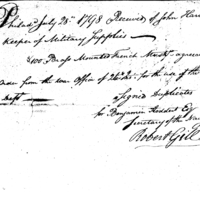 Philad.a July 28th 1798 Received of John Harr
Keeper of Military Supplies
3100 Brass Mounted French Musk.ts agree
order from the war Office of for the use of the
Signed Duplicates
to Benjamin Stoddert Esq
Secretary of the
Robert Gill